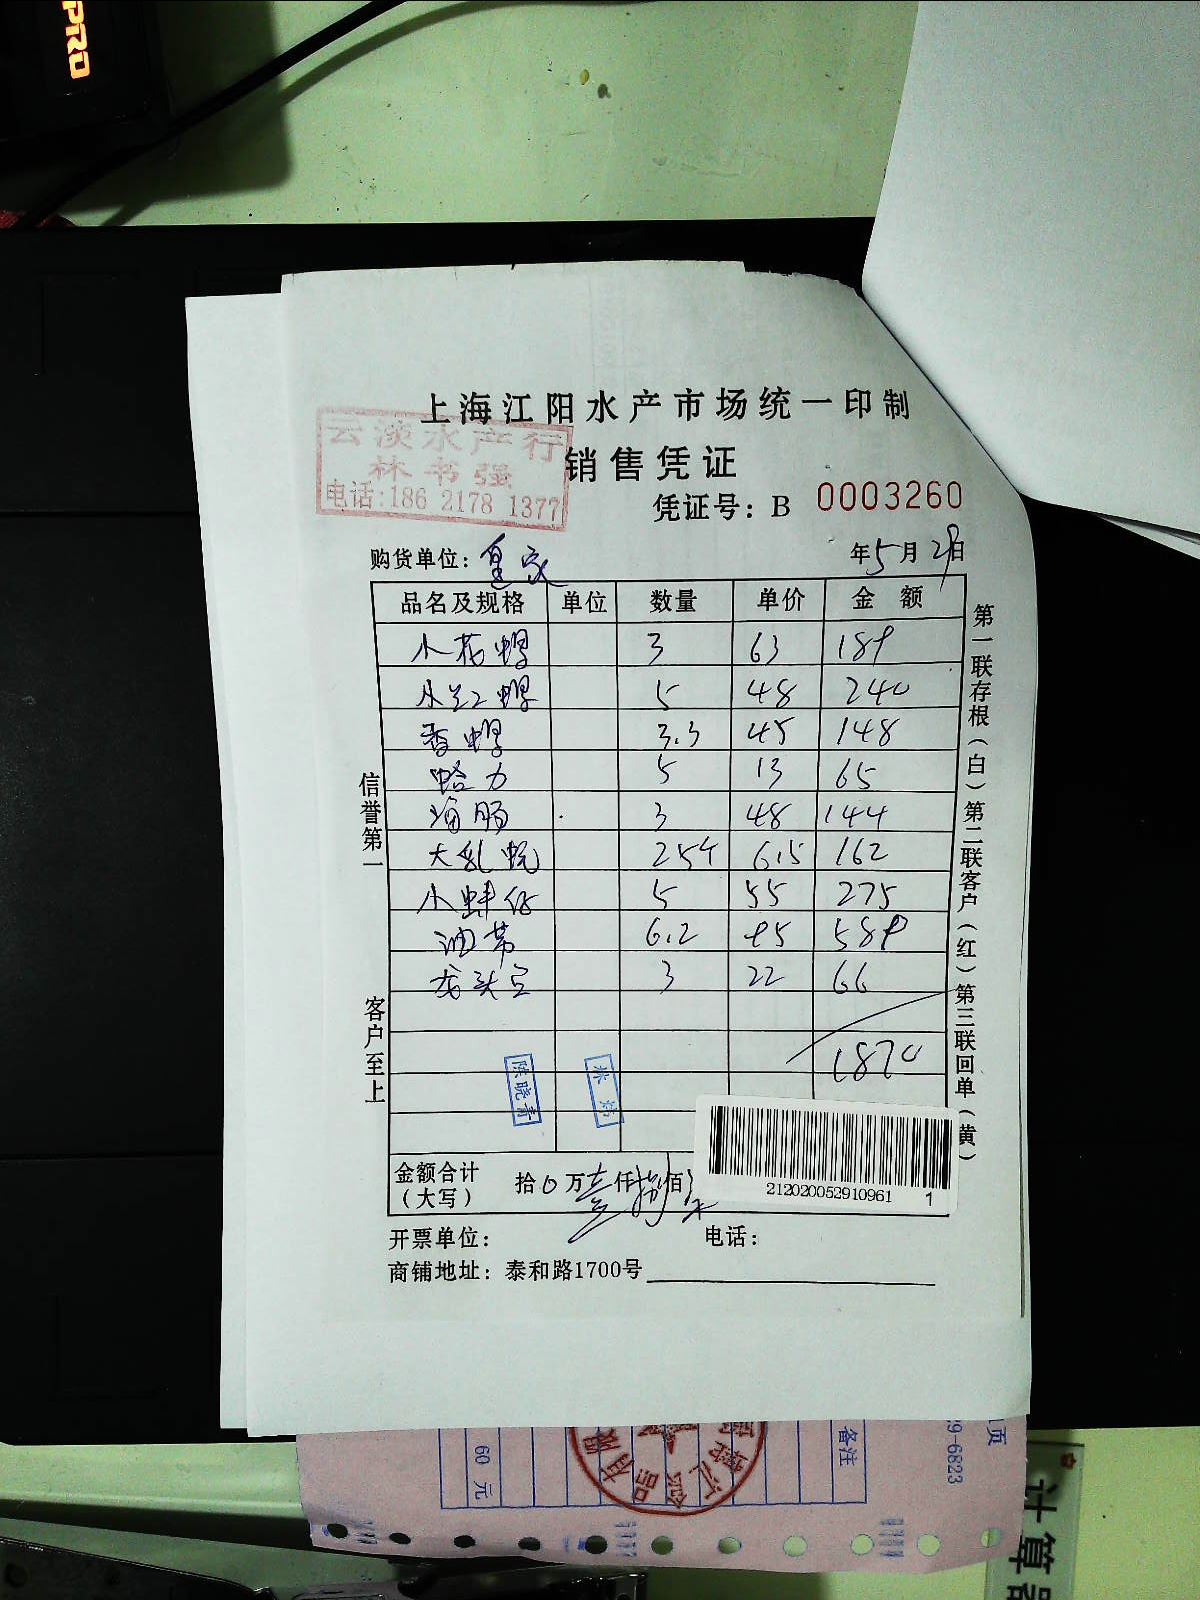 PRO
上海江阳水产市场统一印制
云淡水产行
林书强
电话:186 2178 1377
销售凭证
凭证号: B 0003260
购货单位: 皇家 年5月29日
品名及规格 单位 数量 单价 金额
小花螺 3 63 189
小红螺 5 48 240
香螺 3.3 45 148
蛤力 5 13 65
海肠 3 48 144
大乱蚬 254 6.5 162
小蚌仔 5 55 275
油带 6.2 95 589
龙头宝 3 22 66
1870
信誉第一
客户至上
第一联存根(白)第二联客户(红)第三联回单(黄)
陈晓青
林炜
金额合计(大写) 拾0万壹仟捌佰柒
212020052910961 1
开票单位: 电话:
商铺地址: 泰和路1700号
60元
备注
9-6823
页
计算器